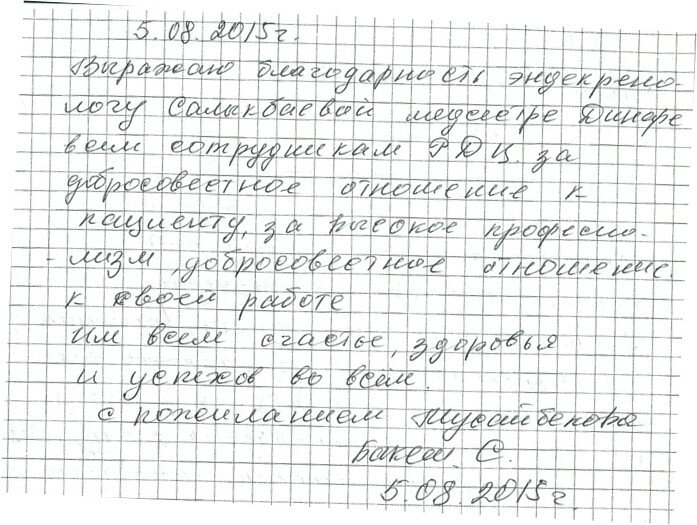 5.08.2015г.
Выражаю благодарность эндекрено-
логу Салыкбаевой медсестре Динаре
всем сотрудникам РДЦ. за
добросовестное отношение к
пациенту, за высокое професио-
-лизм, добросовестное отношение
к своей работе
им всем счастье, здоровья
и успехов во всём.
с пожеланием Мусайбекова
С.
5.08.2015г.